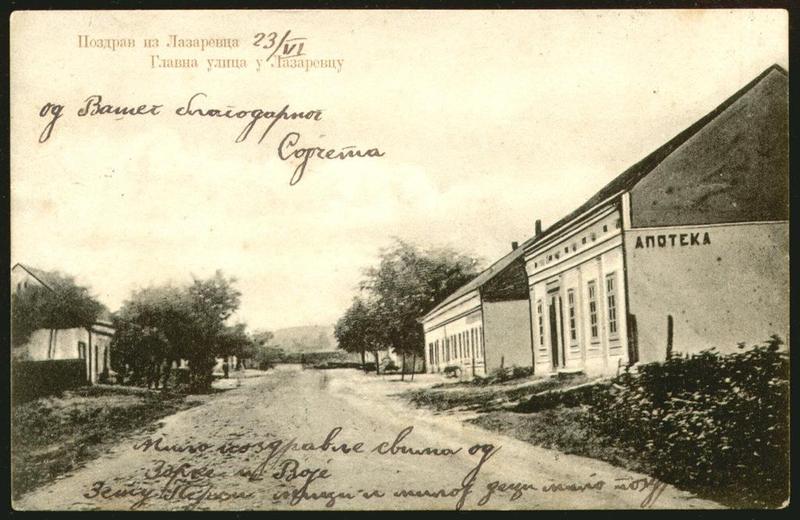 Поздрав из Лазаревца 23/VI
Главна улица у Лазаревцу
од Вашег благодарног
Сорчета
АПОТЕКА
Мило поздравље свима од
Зорке и Воје
Зету и милој деци мило